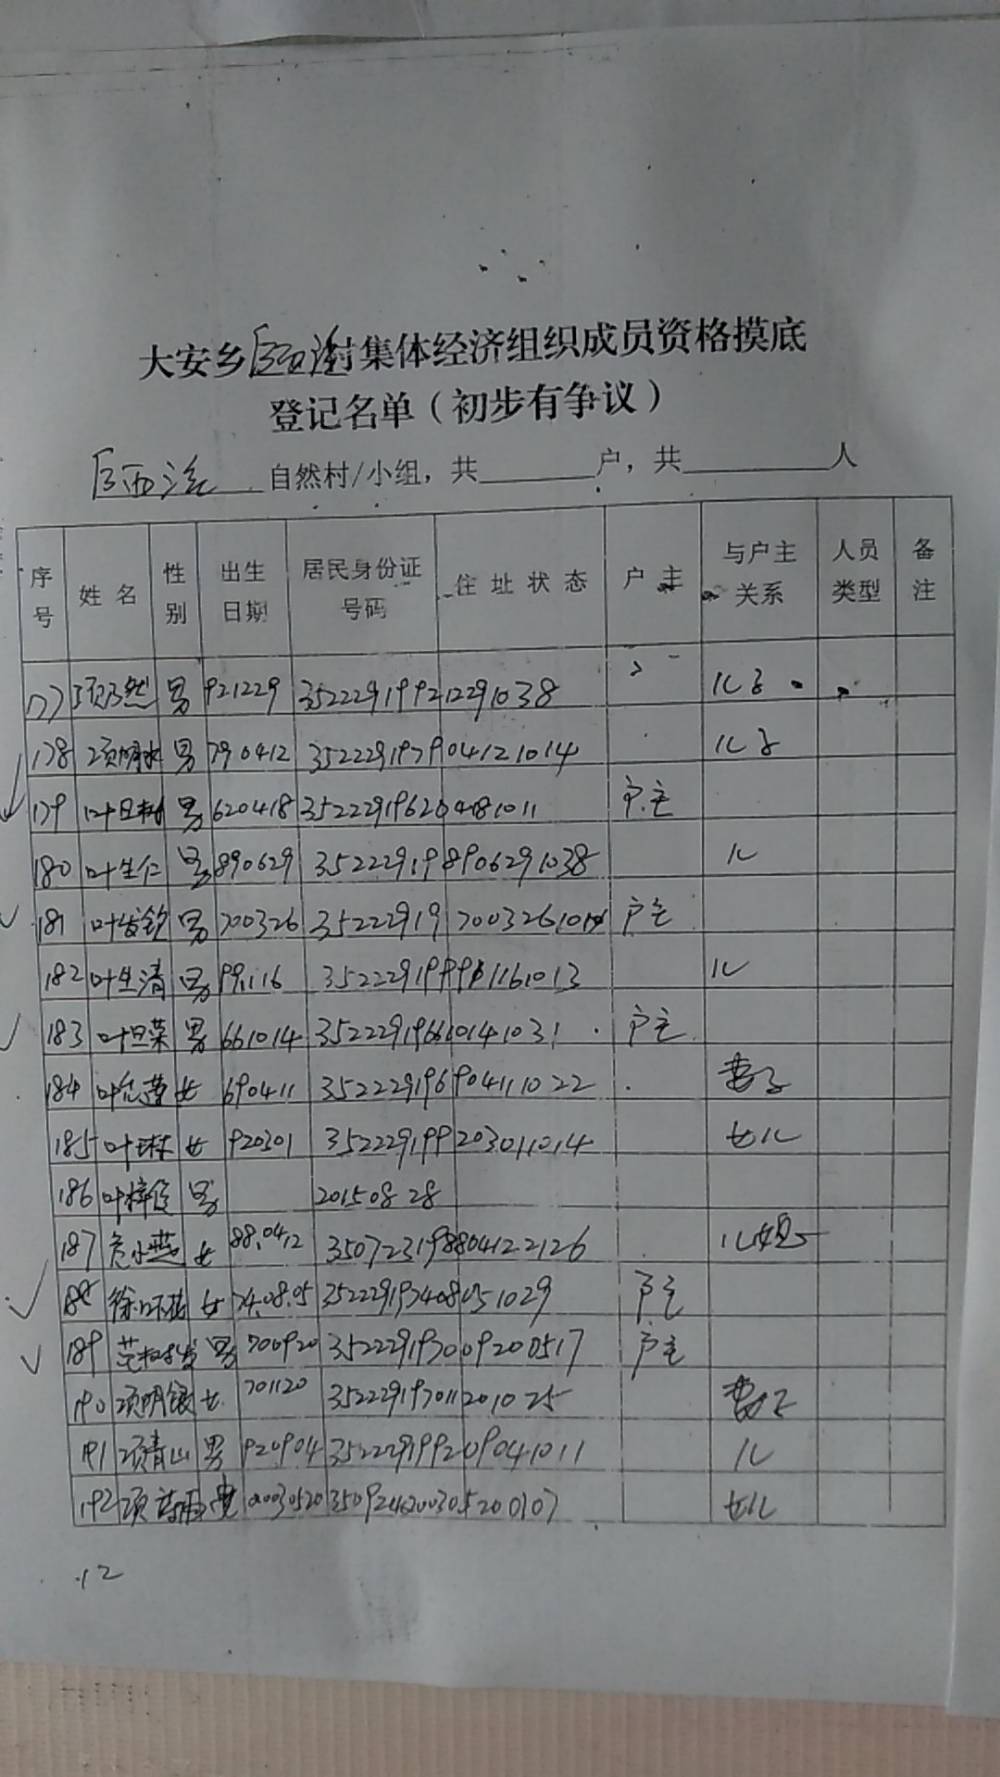 大安乡后西洋村集体经济组织成员资格摸底
登记名单（初步有争议）
后西洋 自然村/小组，共 户，共 人
序号 姓名 性别 出生日期 居民身份证号码 住址状态 户主 与户主关系 人员类型 备注
177 项乃然 男 921229 352229199212291038 儿子
178 项明水 男 790412 352229197904121014 儿子
179 叶旦树 男 620418 352229196204181011 户主
180 叶生仁 男 890629 352229198906291038 儿
181 叶发钦 男 700326 35222919700326101 户主
182 叶生清 男 99.1.16 352229199901161013 儿
183 叶旦荣 男 661014 352229196610141031 户主
184 叶 莲 女 690411 352229196904111022 妻子
185 叶琳 女 920301 352229199203011014 女儿
186 叶梓 男 2015 08 28
187 危小燕 女 88.04.12 350723198804122126 儿媳
188 徐 女 74.08.05 352229197408051029 户主
189 范 发 男 700920 352229197009200517 户主
190 项明银 女 701120 352229197011201025 妻子
191 项青山 男 920904 352229199209041011 儿
192 项 20030520 350924200305200107 女儿
12